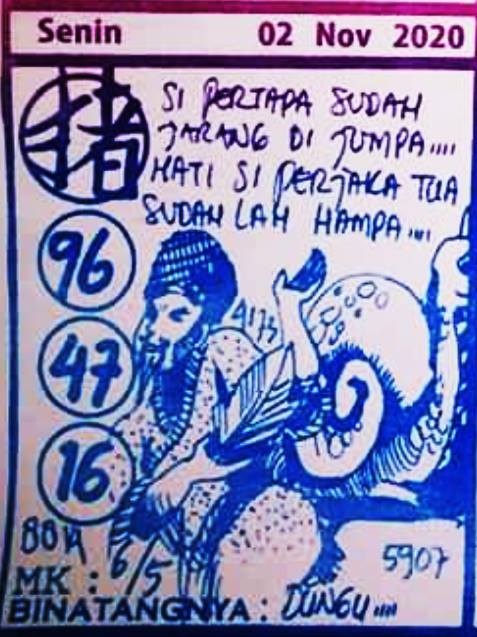 Senin 02 Nov 2020
猪
SI PERTAPA SUDAH
JARANG DI JUMPA....
HATI SI PERJAKA TUA
SUDAH LAH HAMPA....
96
4173
47
16
BBK
5907
MK : 6/5
BINATANGNYA : DUNGU....